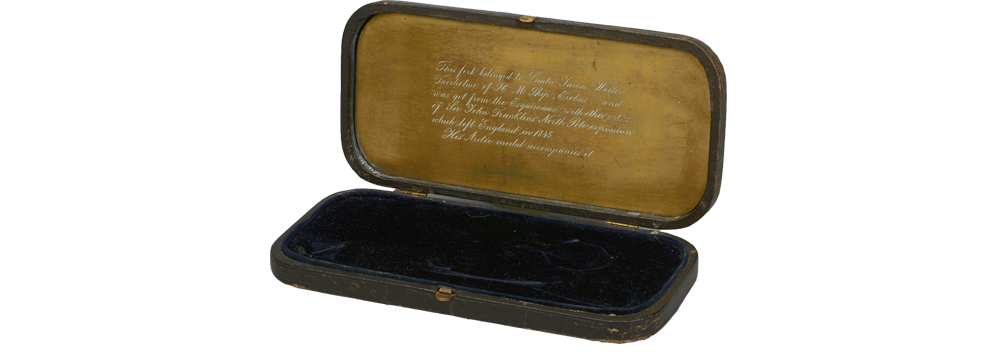 This fork belonged to Lieutn James Walter
Fairholme of H M Ship "Erebus" and
was got from the Esquimaux with other relics
of Sir John Franklins North Pole expedition
which left England in 1845
His Arctic medal accompanies it